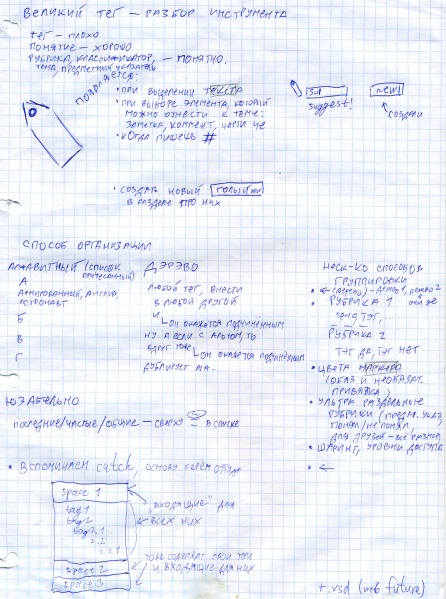 ВЕЛИКИЙ ТЕГ — РАЗБОР ИНСТРУМЕНТА
ТЕГ — ПЛОХО
ПОНЯТИЕ — ХОРОШО
РУБРИКА, КЛАССИФИКАТОР, — ПОНЯТНО.
ТЕМА, ПРЕДМЕТНЫЙ УКАЗАТЕЛЬ
ПОЯВЛЯЕТСЯ:
• ПРИ ВЫДЕЛЕНИИ ТЕКСТА
• ПРИ ВЫБОРЕ ЭЛЕМЕНТА, КОТОРЫЙ
МОЖНО ОТНЕСТИ К ТЕМЕ:
ЗАМЕТКА, КОММЕНТ,
• КОГДА ПИШЕШЬ #
suggest!
new!
СОЗДАЛИ
• СОЗДАН НОВЫЙ
В РАЗДЕЛЕ ПРО НИХ
СПОСОБ ОРГАНИЗАЦИИ
АЛФАВИТНЫЙ (СПИСОК
А
АСТРОНАВТ
Б
В
Г
ДЭРЭВО
ЛЮБОЙ ТЕГ, ВНЕСТИ
В ЛЮБОЙ ДРУГОЙ
И
ОН ОКАЖЕТСЯ ПОДЧИНЕННЫМ
НУ А ЕСЛИ С АЛЬТОМ, ТО
ВДРУГ ТОЖЕ
ОН ОКАЖЕТСЯ ПОДЧИНЕННЫМ
ДУБЛИРУЕТ
НЕСК-КО СПОСОБОВ
ГРУППИРОВКИ
• РУБРИКА 1
РУБРИКА 2
ТУГ ДА, ТУГ НЕТ
• ЦВЕТА МАРКЕРА
(ОБЯЗ И НЕОБЯЗАТ.
ПРИВЯЗКА)
• УЛЬТРА РАЗДЕЛЬНЫЕ
РУБРИКИ (ПРЕДМ. УКАЗ,
ПОНЯЛ/НЕ ПОНЯЛ,
ДЛЯ ДРУЗЕЙ — ВСЕ РАЗНОЕ)
• ШАРИНГ, УРОВНИ ДОСТУПА
• ←
ЮЗАБЕЛЬНО
ПОСЛЕДНИЕ/ЧАСТЫЕ/ОБЩИЕ — СВЕРХУ — В СПИСКЕ
• ВСПОМИНАЕМ catch, ОСНОВУ БЕРЕМ ОТТУДА
space 1
tag 1
tag 2
2.1
2.2
2.2.1
space 2
space 3
"ВХОДЯЩИЕ" ДЛЯ
ВСЕХ НИХ
ТОЖЕ СОДЕРЖАТ СВОИ ТЕГИ
И ВХОДЯЩИЕ ДЛЯ НИХ
+.vsd (web futura)